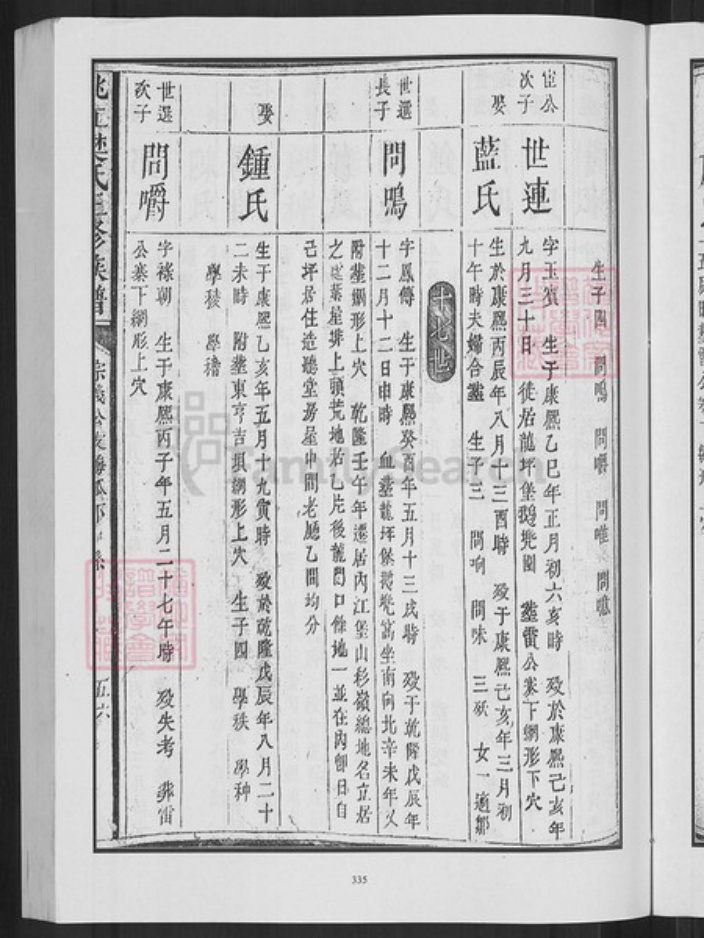 生子四 問鳴 問嚼 問唯 問噫
宦公
次子
世連
字玉賓 生于康熙乙巳年正月初六亥時 殁於康熙己亥年
九月三十日 徙居龍坪堡鵝兠園 塟雷公寨下網形下穴
娶
藍氏
生於康熙丙辰年八月十三酉時 殁于康熙己亥年三月初
十午時夫婦合塟 生子三 問响 問味 三殀 女一適鄒
十七世
世選
長子
問鳴
字鳳傳 生于康熙癸酉年五月十三戌時 殁于乾隆戊辰年
十二月十二日申時 血塟龍坪堡鵝兠窩坐南向北辛未年又
附塟網形上穴 乾隆壬午年遷居內江堡山杉嶺總地名立居
之葉星排上頭荒地若乙片後龍門口餘地一並在內卽日自
己坪居住造聽堂房屋中間老廳乙間均分
娶
鍾氏
生于康熙乙亥年五月十九寅時 殁於乾隆戊辰年八月二十
二未時 附塟東亨吉垻網形上穴 生子四 學秩 學种
學稜 學穭
世選
次子
問嚼
字祿朝 生于康熙丙子年五月二十七午時 殁失考 葬雷
公寨下網形上穴
氏五修族譜
宗義公支
五六
335
FamilySearch